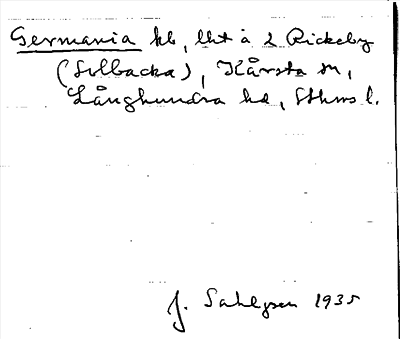 Germania kb, lht å 2 Rickeby
(Solbacka), Kårsta sn,
Långhundra hd, Sthms l.
J. Sahlgren 1935